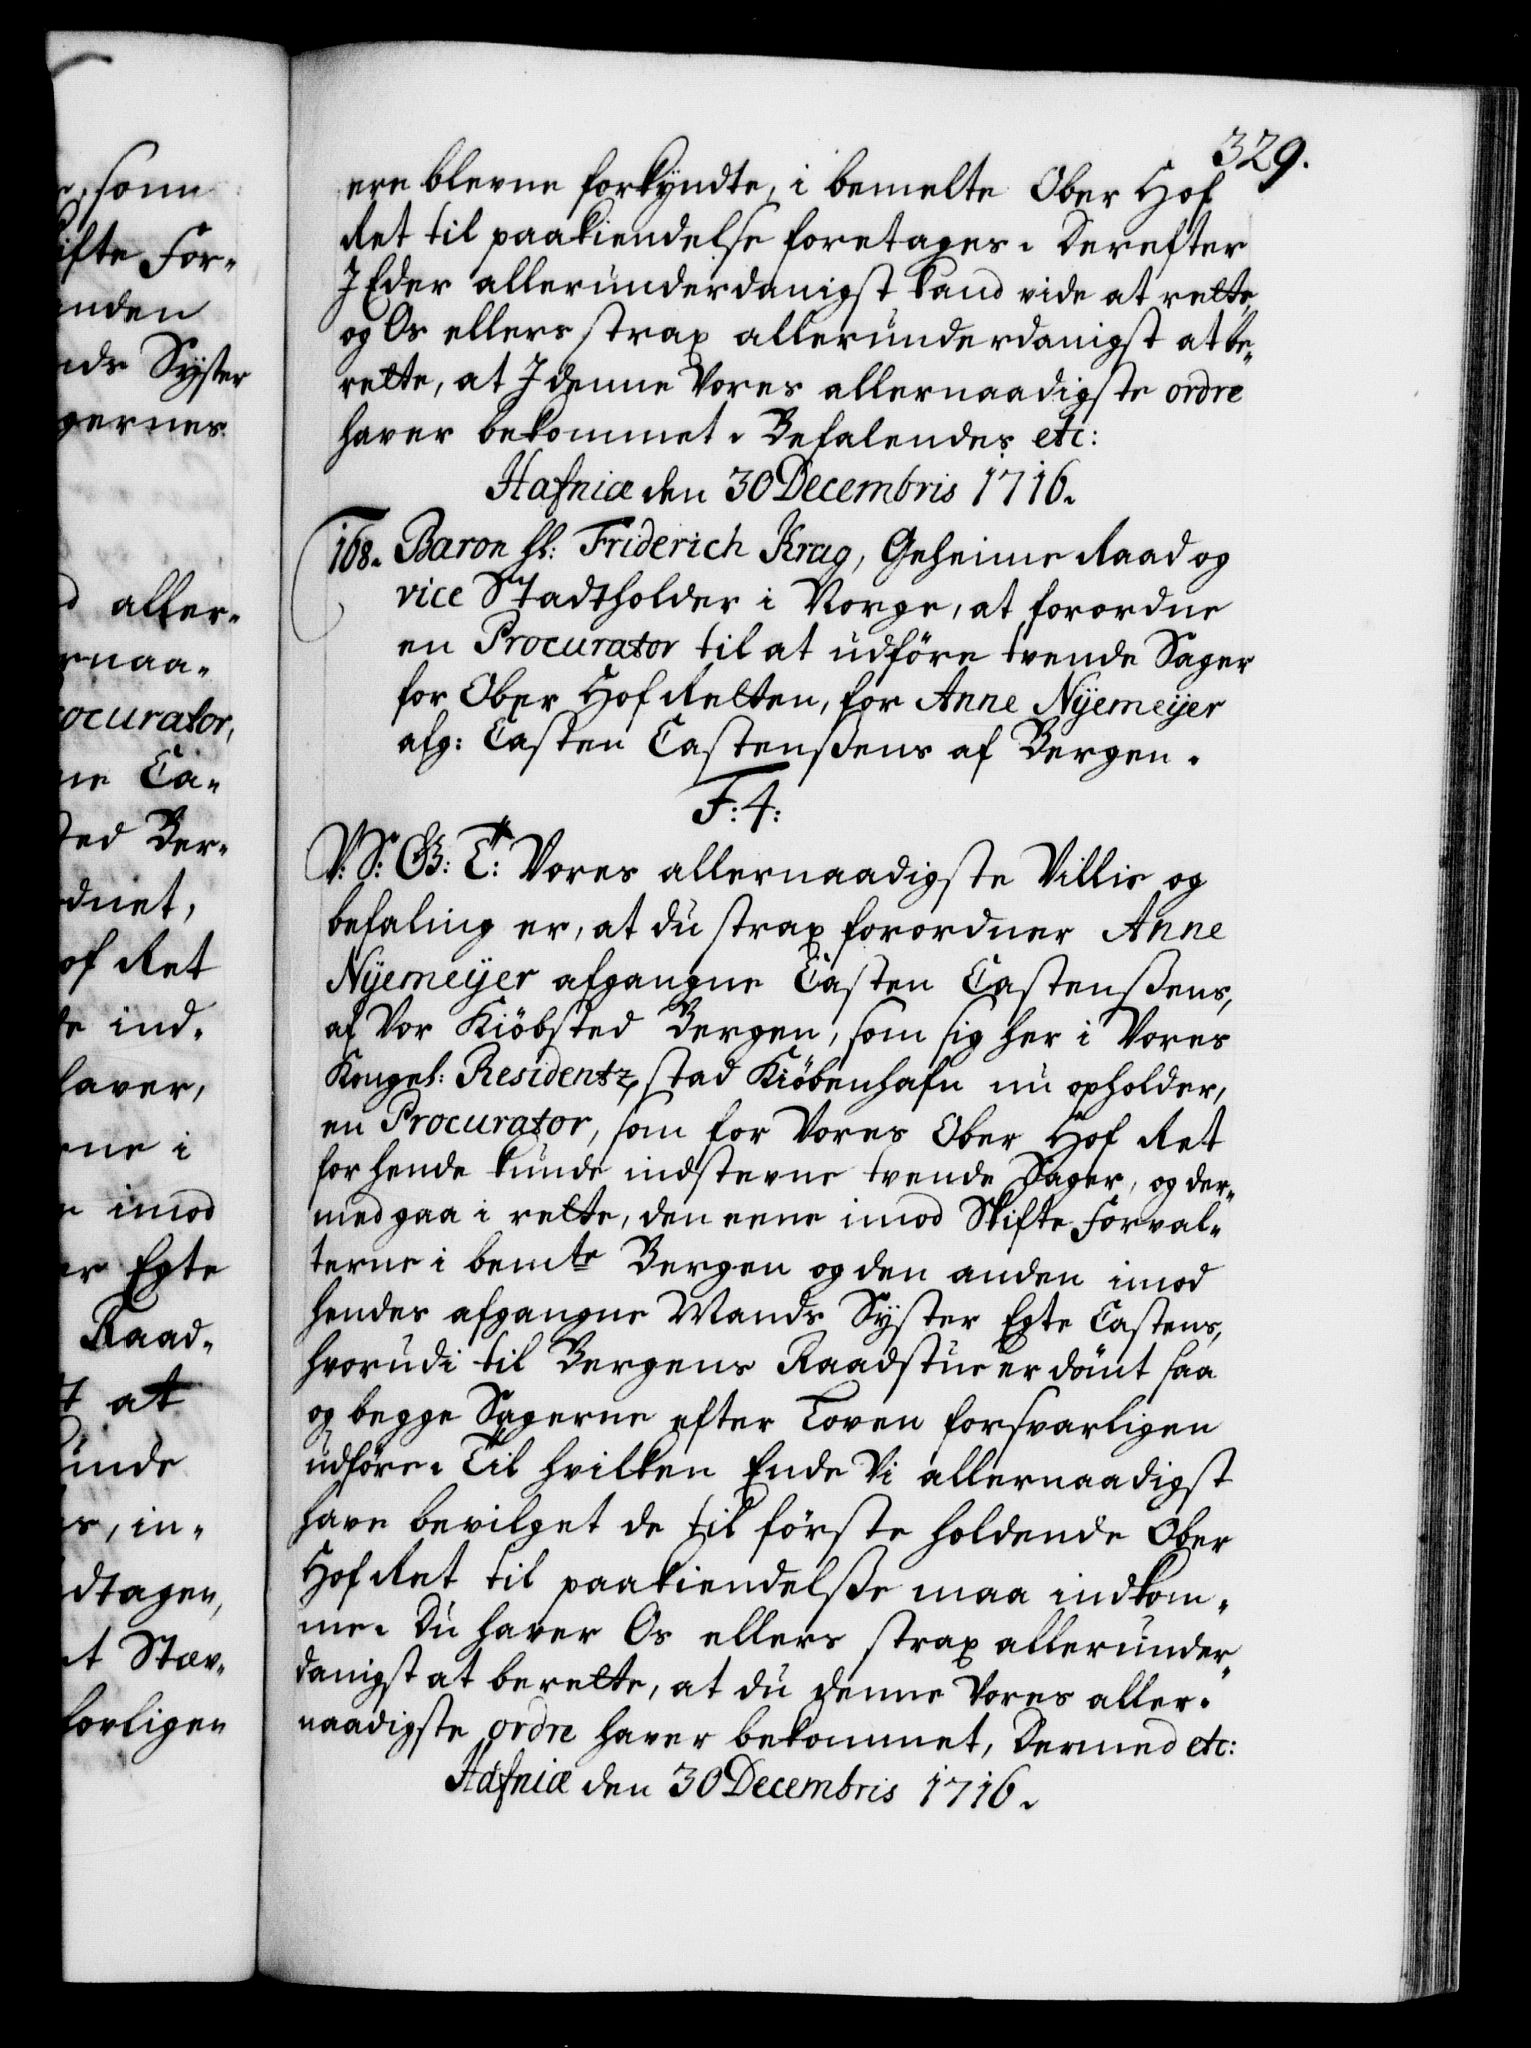 329.
ere blevne forkyndte, i bemelte Ober Hof
Ret til paakiendelse foretages. Derefter
I Eder allerunderdanigst kand vide at rette,
og Os ellers strax allerunderdanigst at be-
rette, at I denne Vores allernaadigste ordre
haver bekommet. Befalendes etc:
Hafniæ den 30 Decembris 1716.
168. Baron hl: Friderich Krag, Geheime Raad og
vice Stadtholder i Norge, at forordne
en Procurator til at udföre tvende Sager
for Ober Hof Retten, for Anne Nyemeyer
afg: Casten Castenßens af Bergen.
F:4:
V: S: G: T: Vores allernaadigste Villie og
befaling er, at du strax forordner Anne
Nyemeyer afgangne Casten Castenßens,
af Vor Kiöbsted Bergen, som sig her i Vores
Kongel: Residentz stad Kiöbenhafn nu opholder,
en Procurator, som for Vores Ober Hof Ret
for hende kunde indstevne tvende Sager, og der-
med gaa i rette, den eene imod Skifte Forval-
terne i bemte Bergen og den anden imod
hendes afgangne Mands Syster Egte Castens,
hvorudi til Bergens Raadstue er dömt saa
og begge Sagerne efter Loven forsvarligen
udföre. Til hvilken Ende Vi allernaadigst
have bevilget de til förste holdende Ober
Hof Ret til paakiendelße maa indkom-
me. Du haver Os ellers strax allerunder-
danigst at berette, at du denne Vores aller-
naadigste ordre haver bekommet, Dermed etc:
Hafniæ den 30 Decembris 1716.